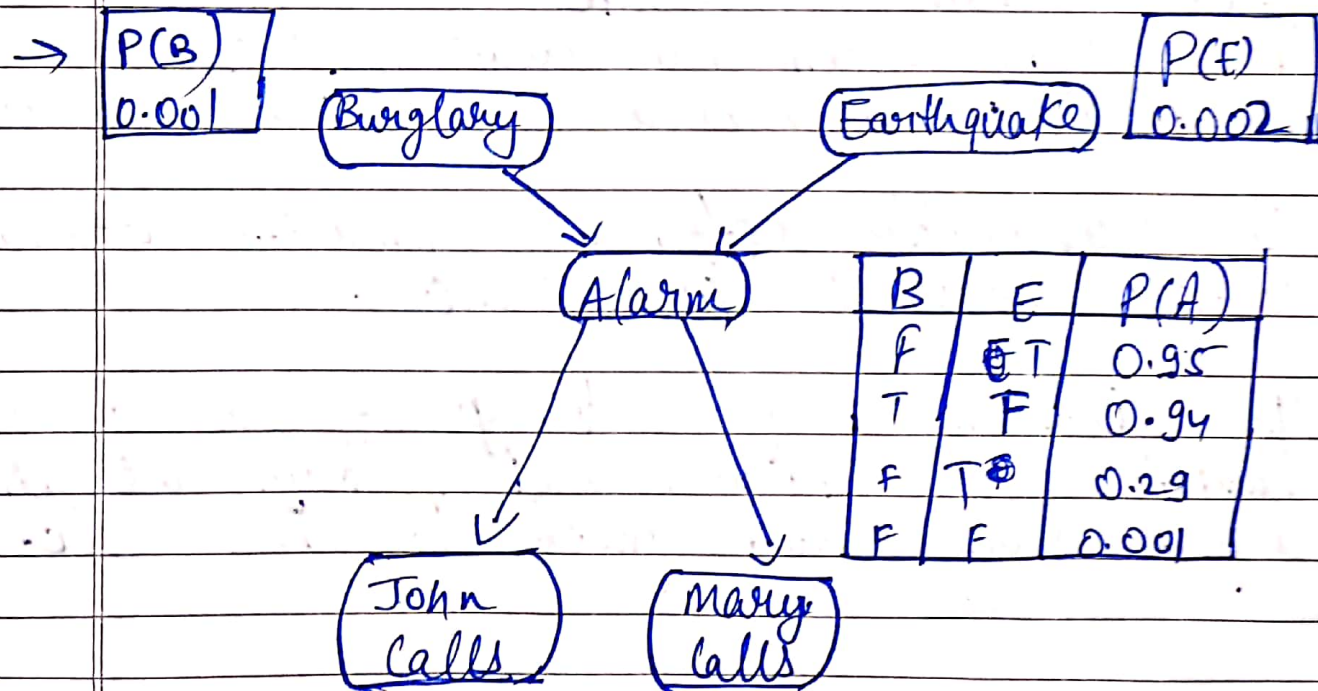 → P(B)
0.001
P(E)
0.002
Burglary
Earthquake
Alarm
B E P(A)
F T 0.95
T F 0.94
F T 0.29
F F 0.001
John
Calls
Mary
Calls